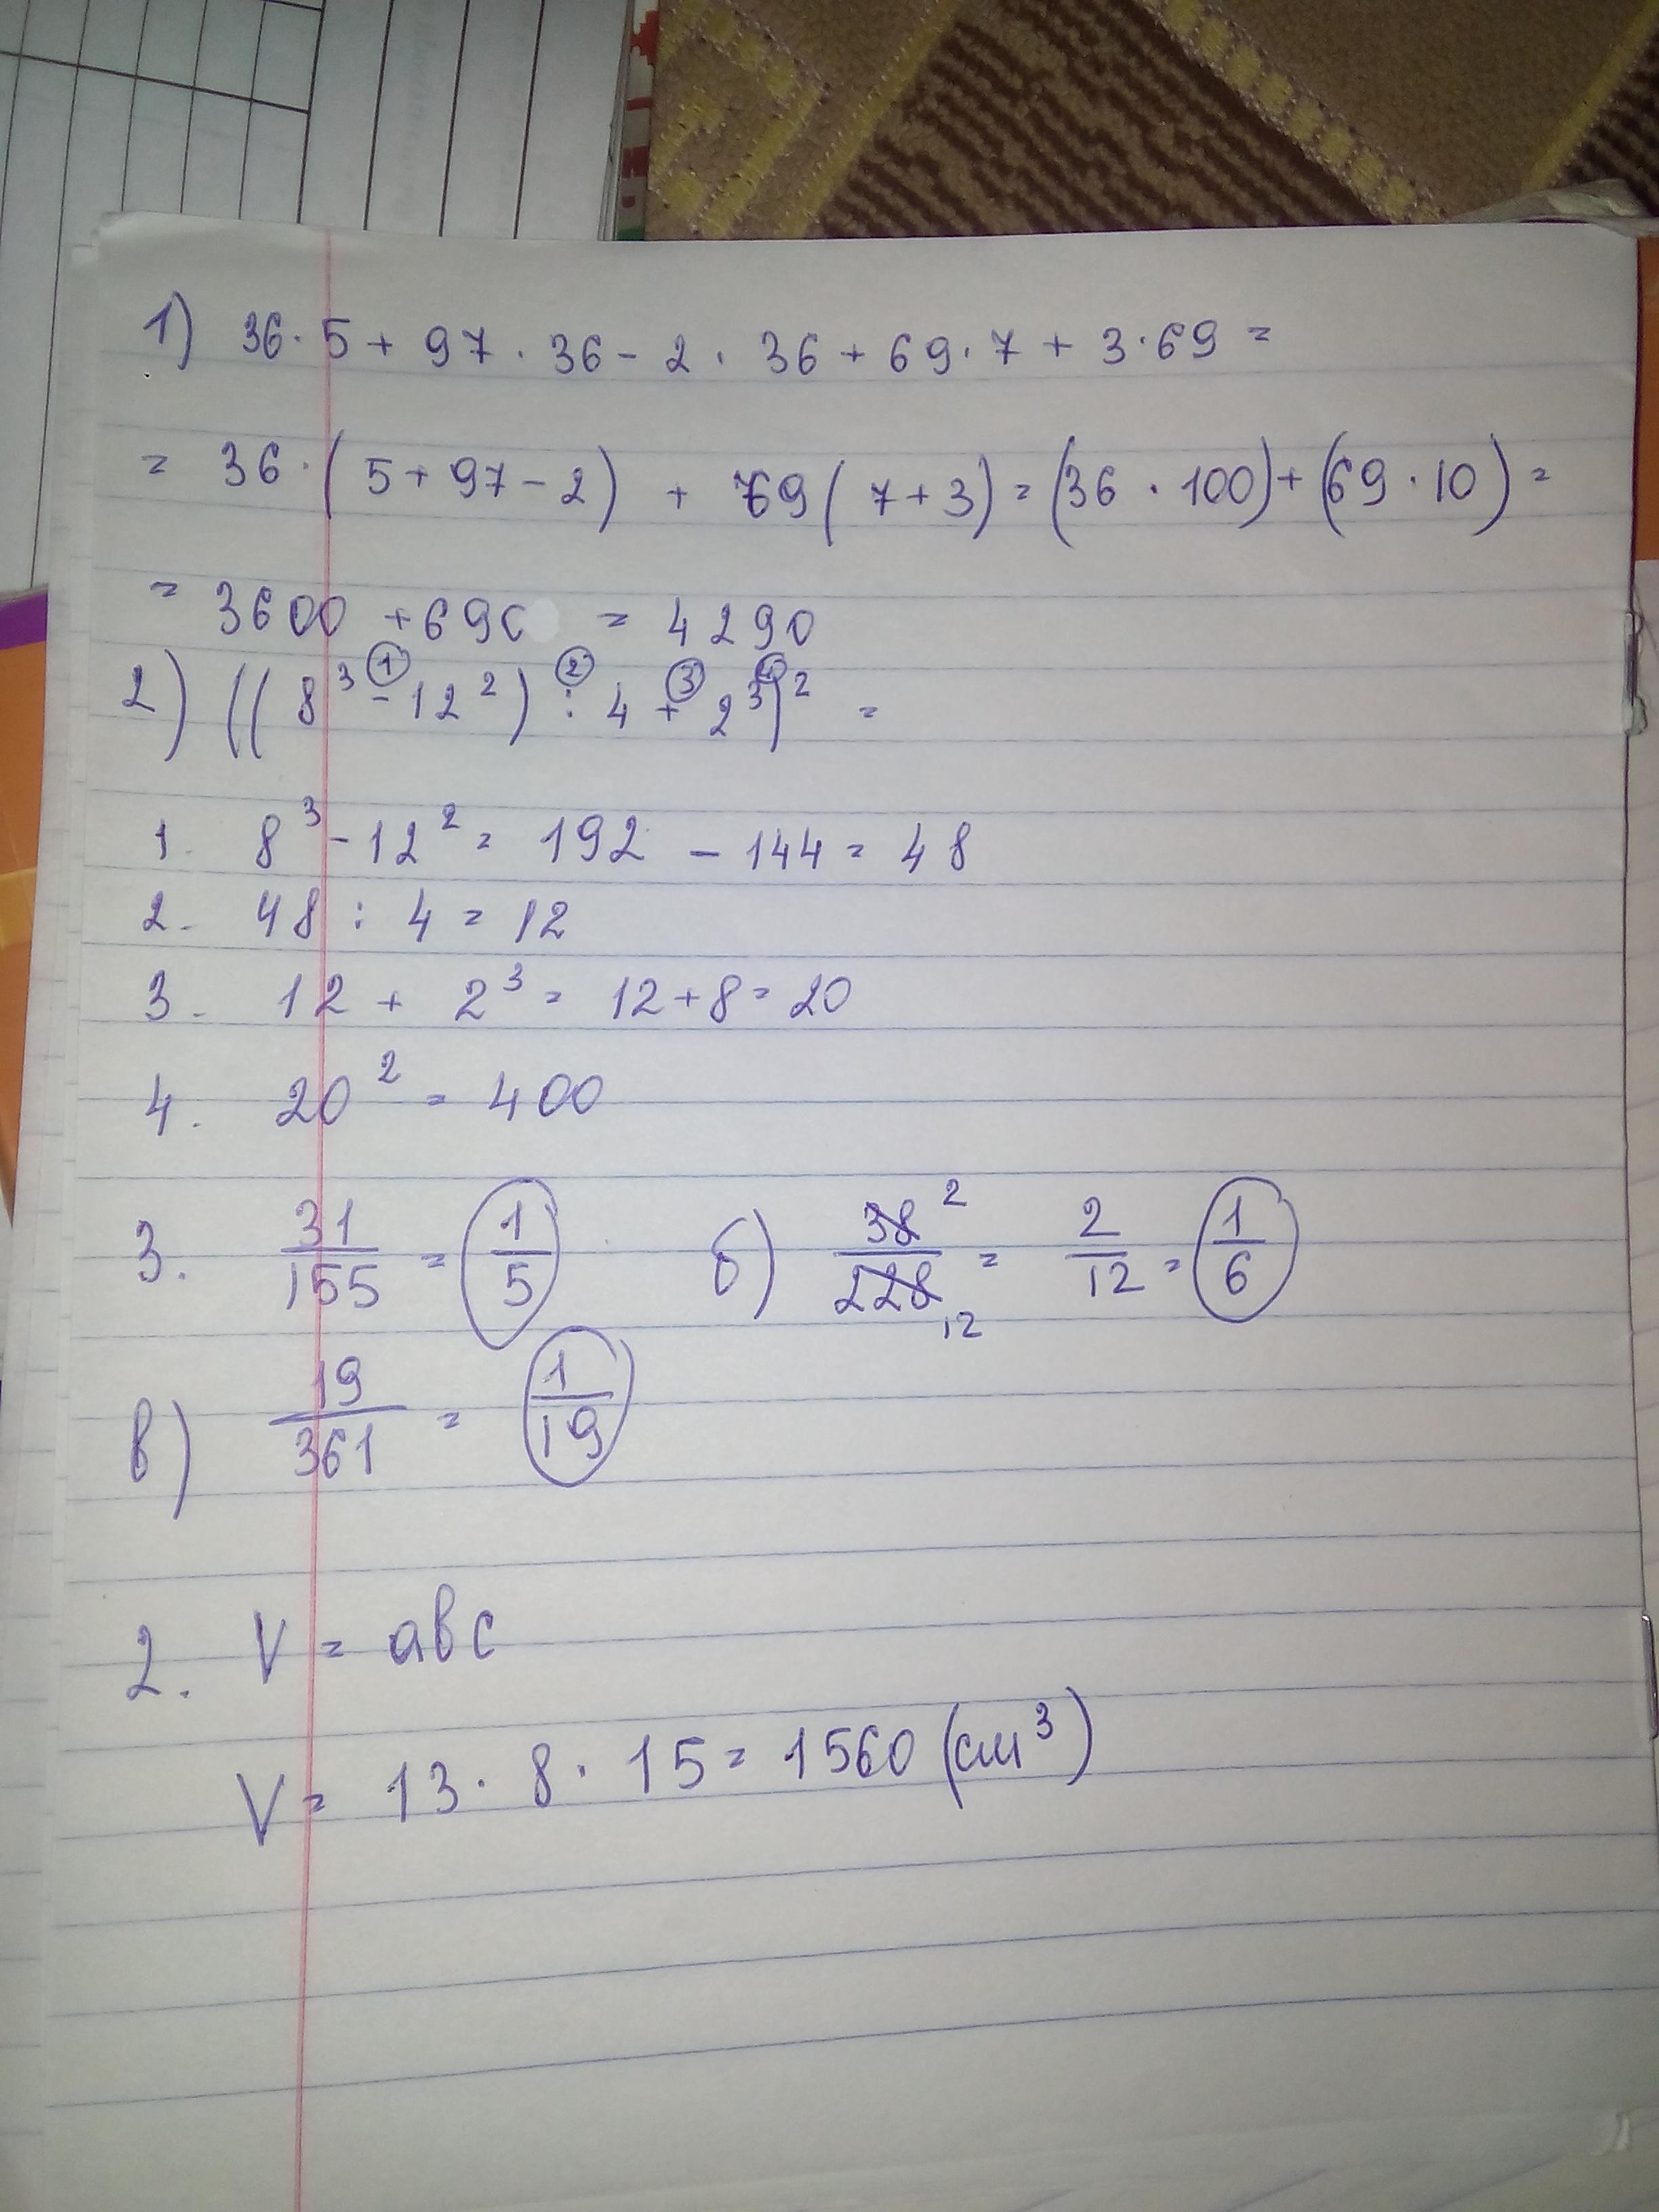 1) 36 · 5 + 97 · 36 - 2 · 36 + 69 · 7 + 3 · 69 =
= 36 · ( 5 + 97 - 2 ) + 69 ( 7 + 3 ) = (36 · 100) + (69 · 10) =
= 3600 + 690 = 4290
① ② ③ ④
2) (( 8³ - 12² ) : 4 + 2³)² =
1. 8³ - 12² = 192 - 144 = 48
2. 48 : 4 = 12
3. 12 + 2³ = 12 + 8 = 20
4. 20² = 400
3. 31/155 = 1/5 б) 38²/228₁₂ = 2/12 = 1/6
в) 19/361 = 1/19
2. V = abc
V = 13 · 8 · 15 = 1560 (см³)